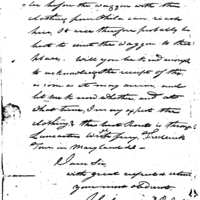 before the waggon with the
clothing from Phila can reach
here, It will therefore probably be
best to send the waggon to that
place. Will you be kind enough
to acknowledge the receipt of this
as soon as it may arrive, and
let me know whether, and at
what time, I may expect the
clothing & the best Route is through
Lancaster York, Frederick
Town in Maryland &c
I am Sir,
with great respect
your most obedient